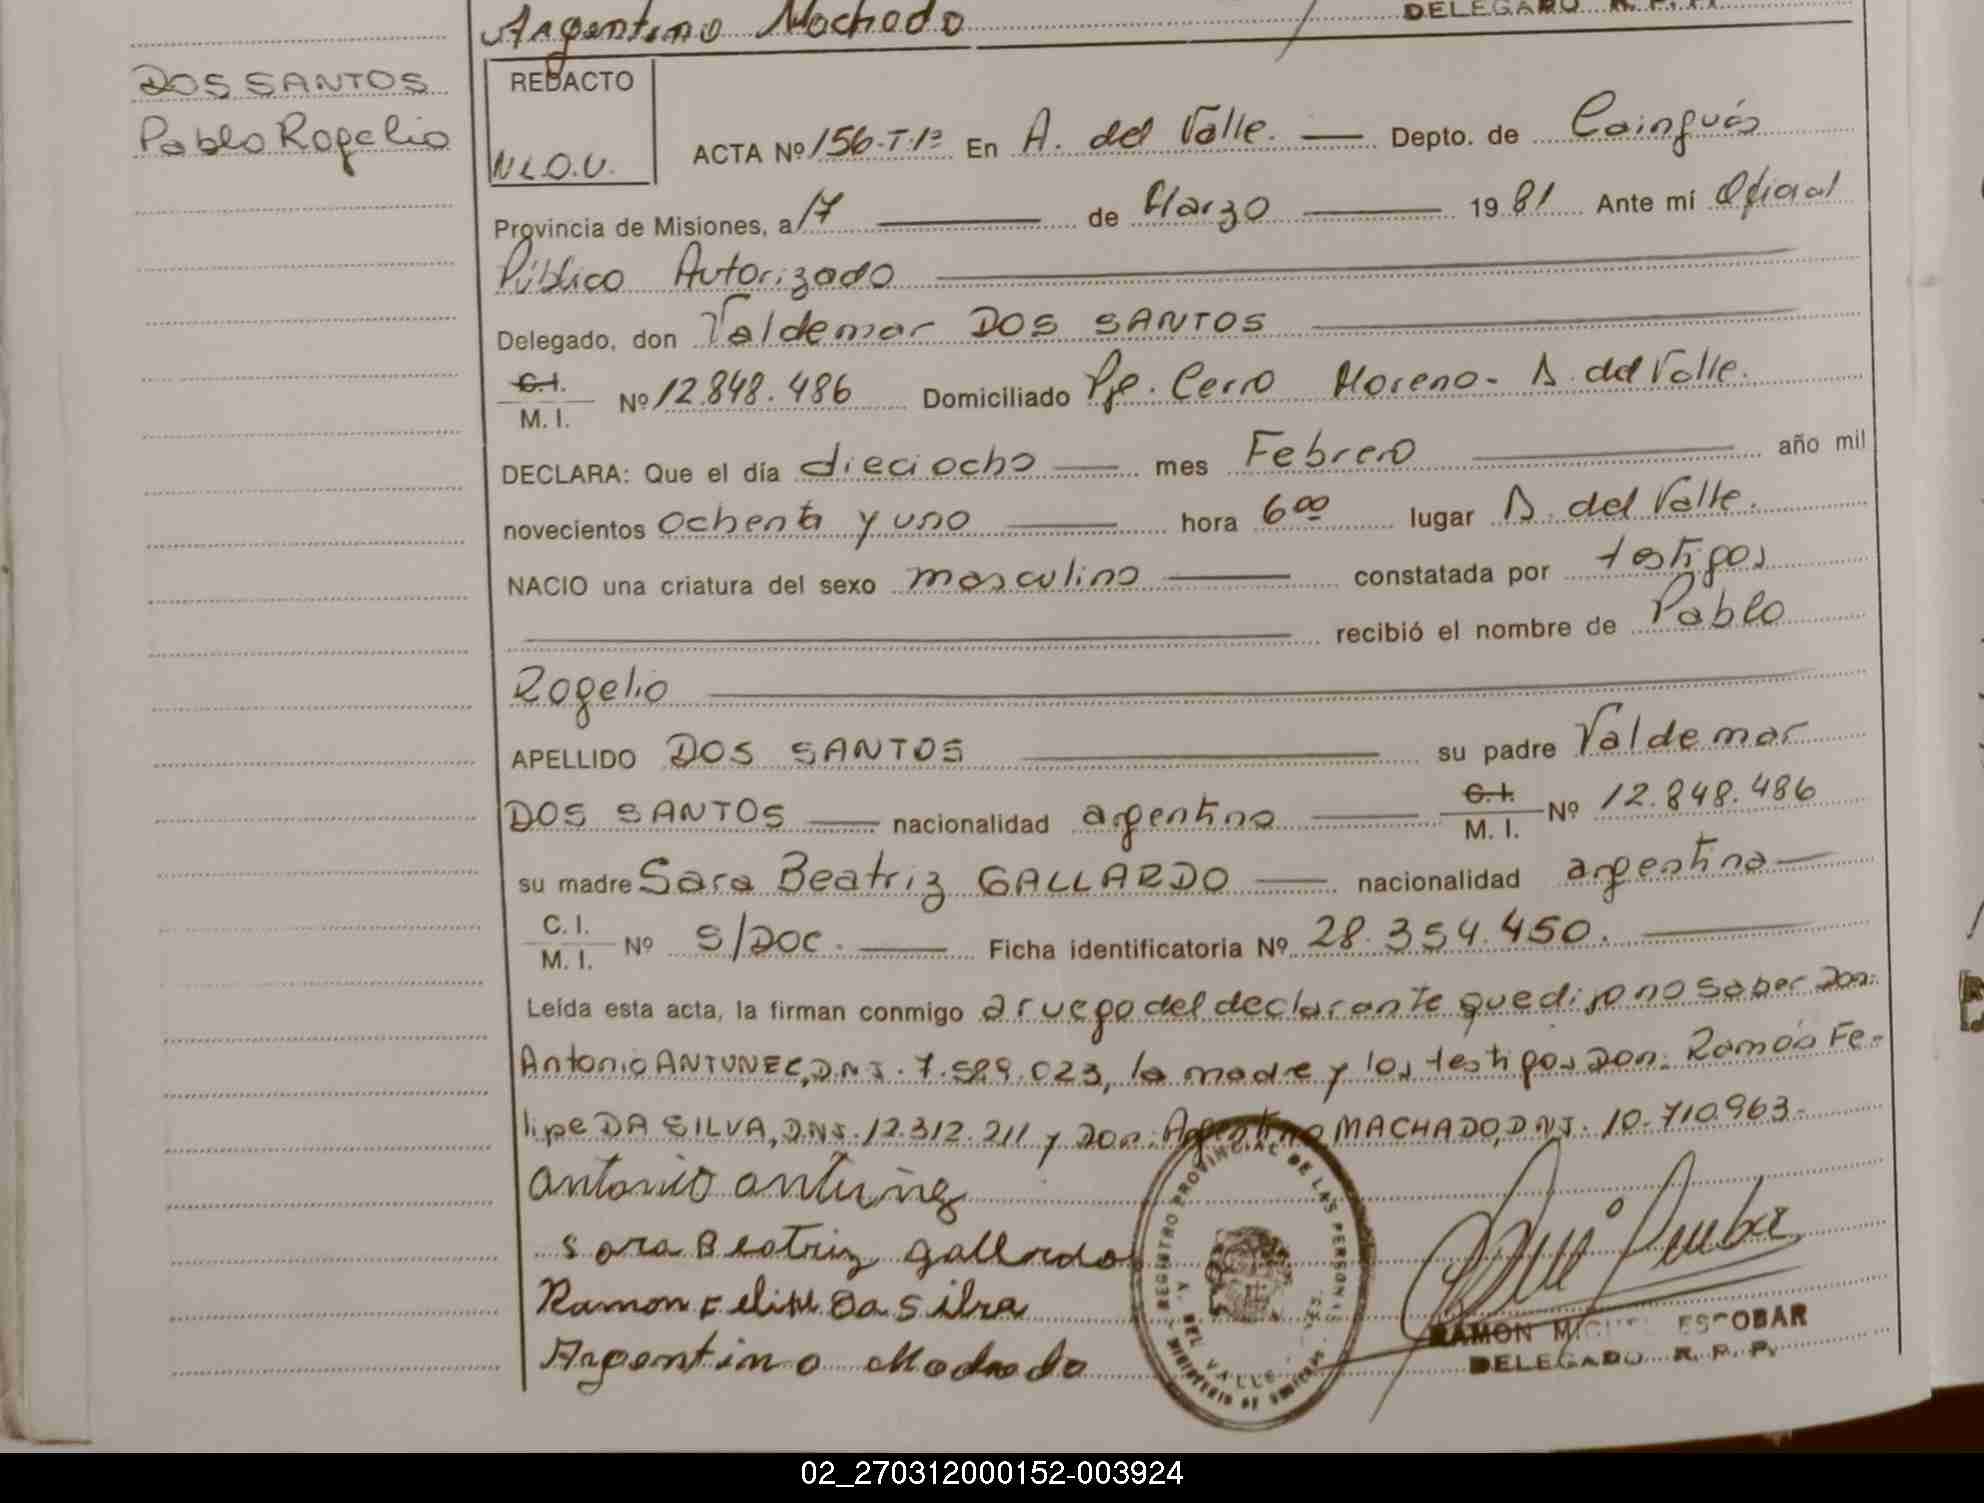 Argentino Machado
DELEGADO R. P. P.
DOS SANTOS
Pablo Rogelio
REDACTO
N.L.O.V.
ACTA Nº 156-T-1º En A. del Valle. — Depto. de Cainguás
Provincia de Misiones, a 17 — de Marzo — 1981 Ante mí Oficial
Público Autorizado
Delegado, don Valdemar DOS SANTOS
C.I.
M. I. Nº 12.848.486 Domiciliado Pje. Cerro Moreno- A. del Valle.
DECLARA: Que el día dieciocho — mes Febrero — año mil
novecientos ochenta y uno — hora 6 00 lugar A. del Valle.
NACIO una criatura del sexo masculino — constatada por testigos
— recibió el nombre de Pablo
Rogelio —
APELLIDO DOS SANTOS — su padre Valdemar
DOS SANTOS — nacionalidad argentino — C.I. M. I. Nº 12.848.486
su madre Sara Beatriz GALLARDO — nacionalidad argentina —
C. I.
M. I. Nº S/DOC. — Ficha identificatoria Nº 28.354.450. —
Leída esta acta, la firman conmigo a ruego del declarante que dijo no saber Don:
Antonio ANTUNEZ, D.N.I. 7.589.023, la madre y los testigos Don: Ramón Fe-
lipe DA SILVA, D.N.I. 12.312.211 y Don: Argentino MACHADO, D.N.I. 10.710.963.-
antonio antunez
Sara Beatriz gallardo
Ramon Felipe Da Silva
Argentino Machado
REGISTRO PROVINCIAL DE LAS PERSONAS
A. DEL VALLE
RAMON MIGUEL ESCOBAR
DELEGADO R. P. P.
02_270312000152-003924